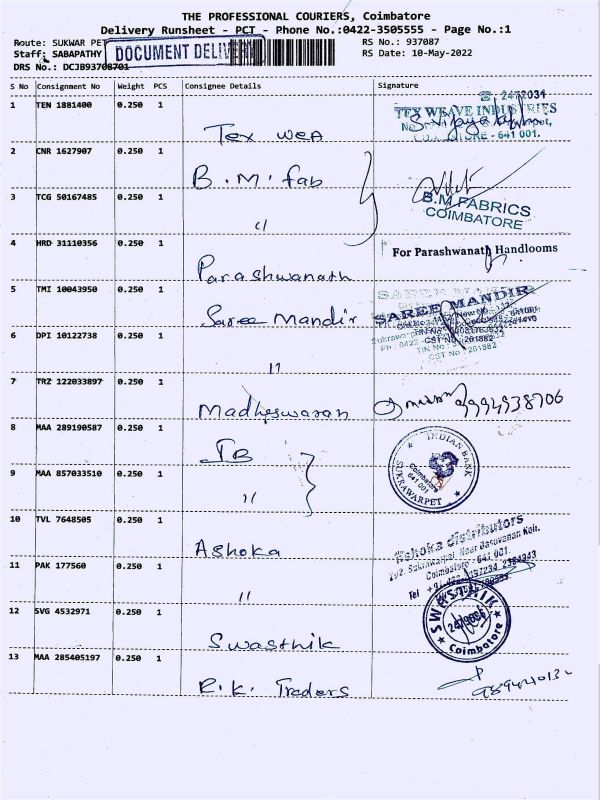 THE PROFESSIONAL COURIERS, Coimbatore
Delivery Runsheet - PCT - Phone No.:0422-3505555 - Page No.:1
Route: SUKWAR PET
RS No.: 937087
Staff: SABAPATHY
DOCUMENT DELIVERY
RS Date: 10-May-2022
DRS No.: DCJB93708701
S No Consignment No Weight PCS Consignee Details Signature
1 TEN 1881400 0.250 1 Tex wea
2472034
TEX WEAVE INDUSTRIES
641 001.
2 CNR 1627907 0.250 1 B.M. fab
3 TCG 50167485 0.250 1 "
B.M FABRICS
COIMBATORE
4 HRD 31110356 0.250 1 Parashwanath
For Parashwanath Handlooms
5 TMI 10043950 0.250 1 Saree Mandir
SAREE MANDIR
6 DPI 10122738 0.250 1 "
7 TRZ 122033897 0.250 1 Madheswaran
9994938706
8 MAA 289190587 0.250 1 IB
INDIAN BANK
Coimbatore
641 001
SUKRAWARPET
9 MAA 857033510 0.250 1 "
10 TVL 7648505 0.250 1 Ashoka
Ashoka distributors
Coimbatore - 641 001.
Tel
11 PAK 177560 0.250 1 "
12 SVG 4532971 0.250 1 Swasthik
SWASTHIK
Coimbatore
13 MAA 285405197 0.250 1 R.K. Traders